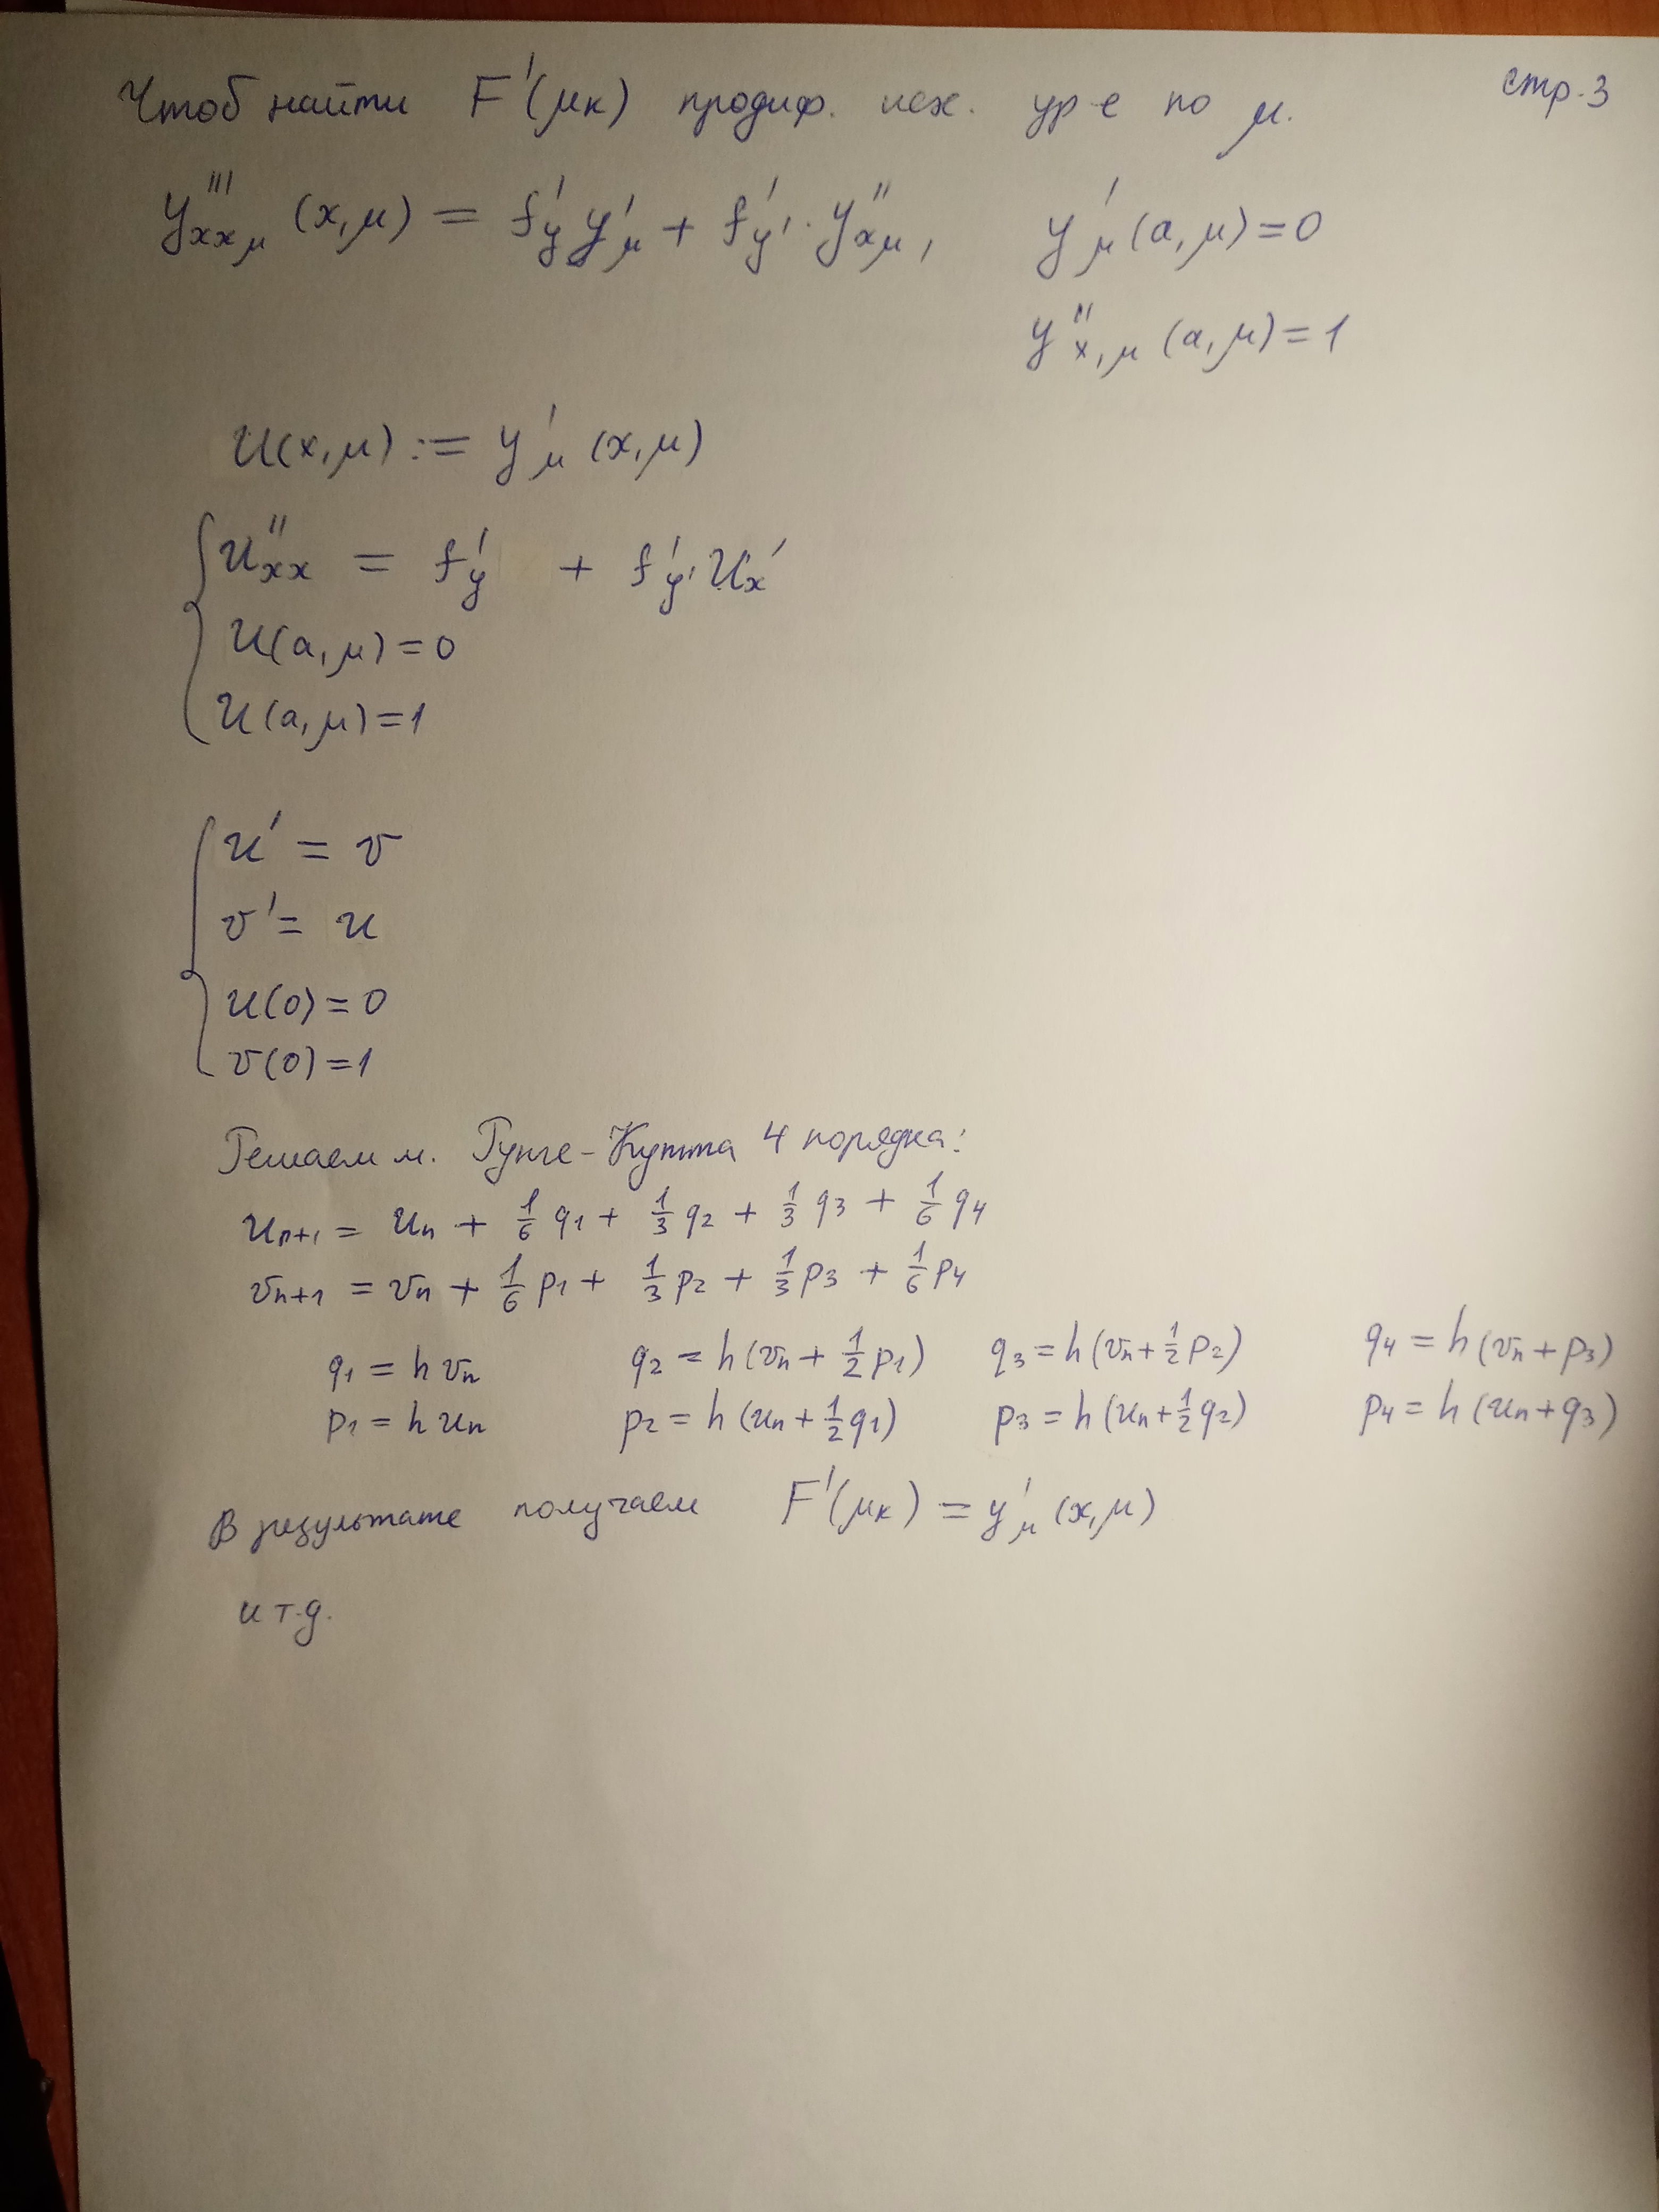 стр.3
Чтоб найти F'(μк) продиф. исх. ур-е по μ.
y'''xxμ (x,μ) = f'y y'μ + f'y' · y''xμ, y'μ(a,μ)=0
y''x,μ (a,μ)=1
u(x,μ) := y'μ (x,μ)
u''xx = f'y + f'y' ux'
u(a,μ)=0
u(a,μ)=1
u' = v
v' = u
u(0)=0
v(0)=1
Решаем м. Рунге-Кутта 4 порядка:
un+1 = un + 1/6 q1 + 1/3 q2 + 1/3 q3 + 1/6 q4
vn+1 = vn + 1/6 p1 + 1/3 p2 + 1/3 p3 + 1/6 p4
q1 = h vn q2 = h(vn + 1/2 p1) q3 = h(vn + 1/2 p2) q4 = h(vn + p3)
p1 = h un p2 = h(un + 1/2 q1) p3 = h(un + 1/2 q2) p4 = h(un + q3)
В результате получаем F'(μк) = y'μ (x,μ)
и т.д.